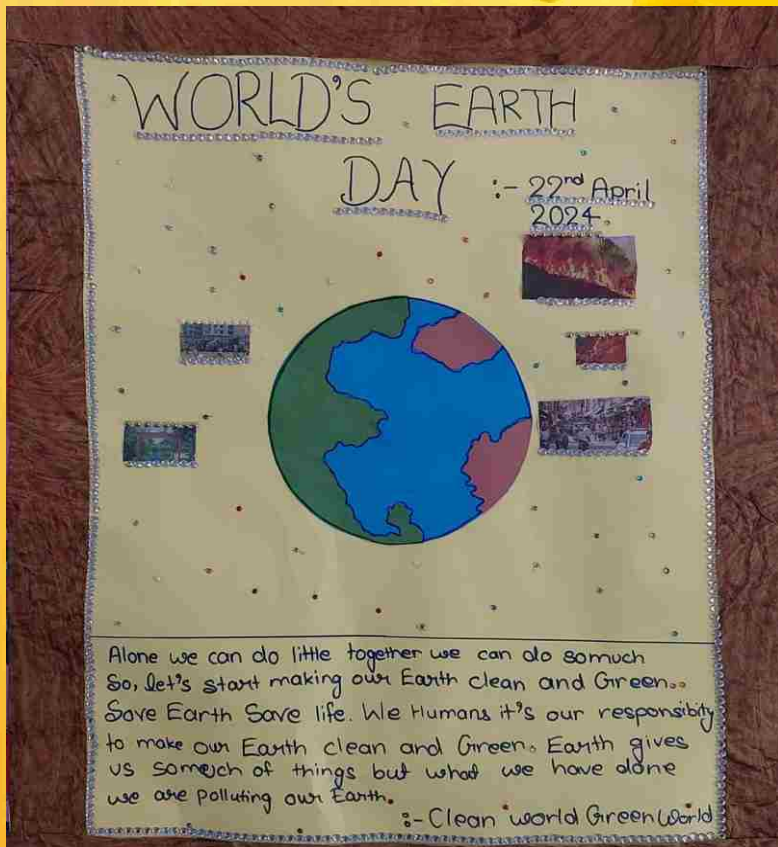 WORLD'S EARTH
DAY :- 22nd April
2024.
Alone we can do little together we can do somuch
So, let's start making our Earth clean and Green..
Save Earth Save life. We Humans it's our responsibity
to make our Earth clean and Green. Earth gives
us somuch of things but what we have done
we are polluting our Earth.
:- Clean world Green World